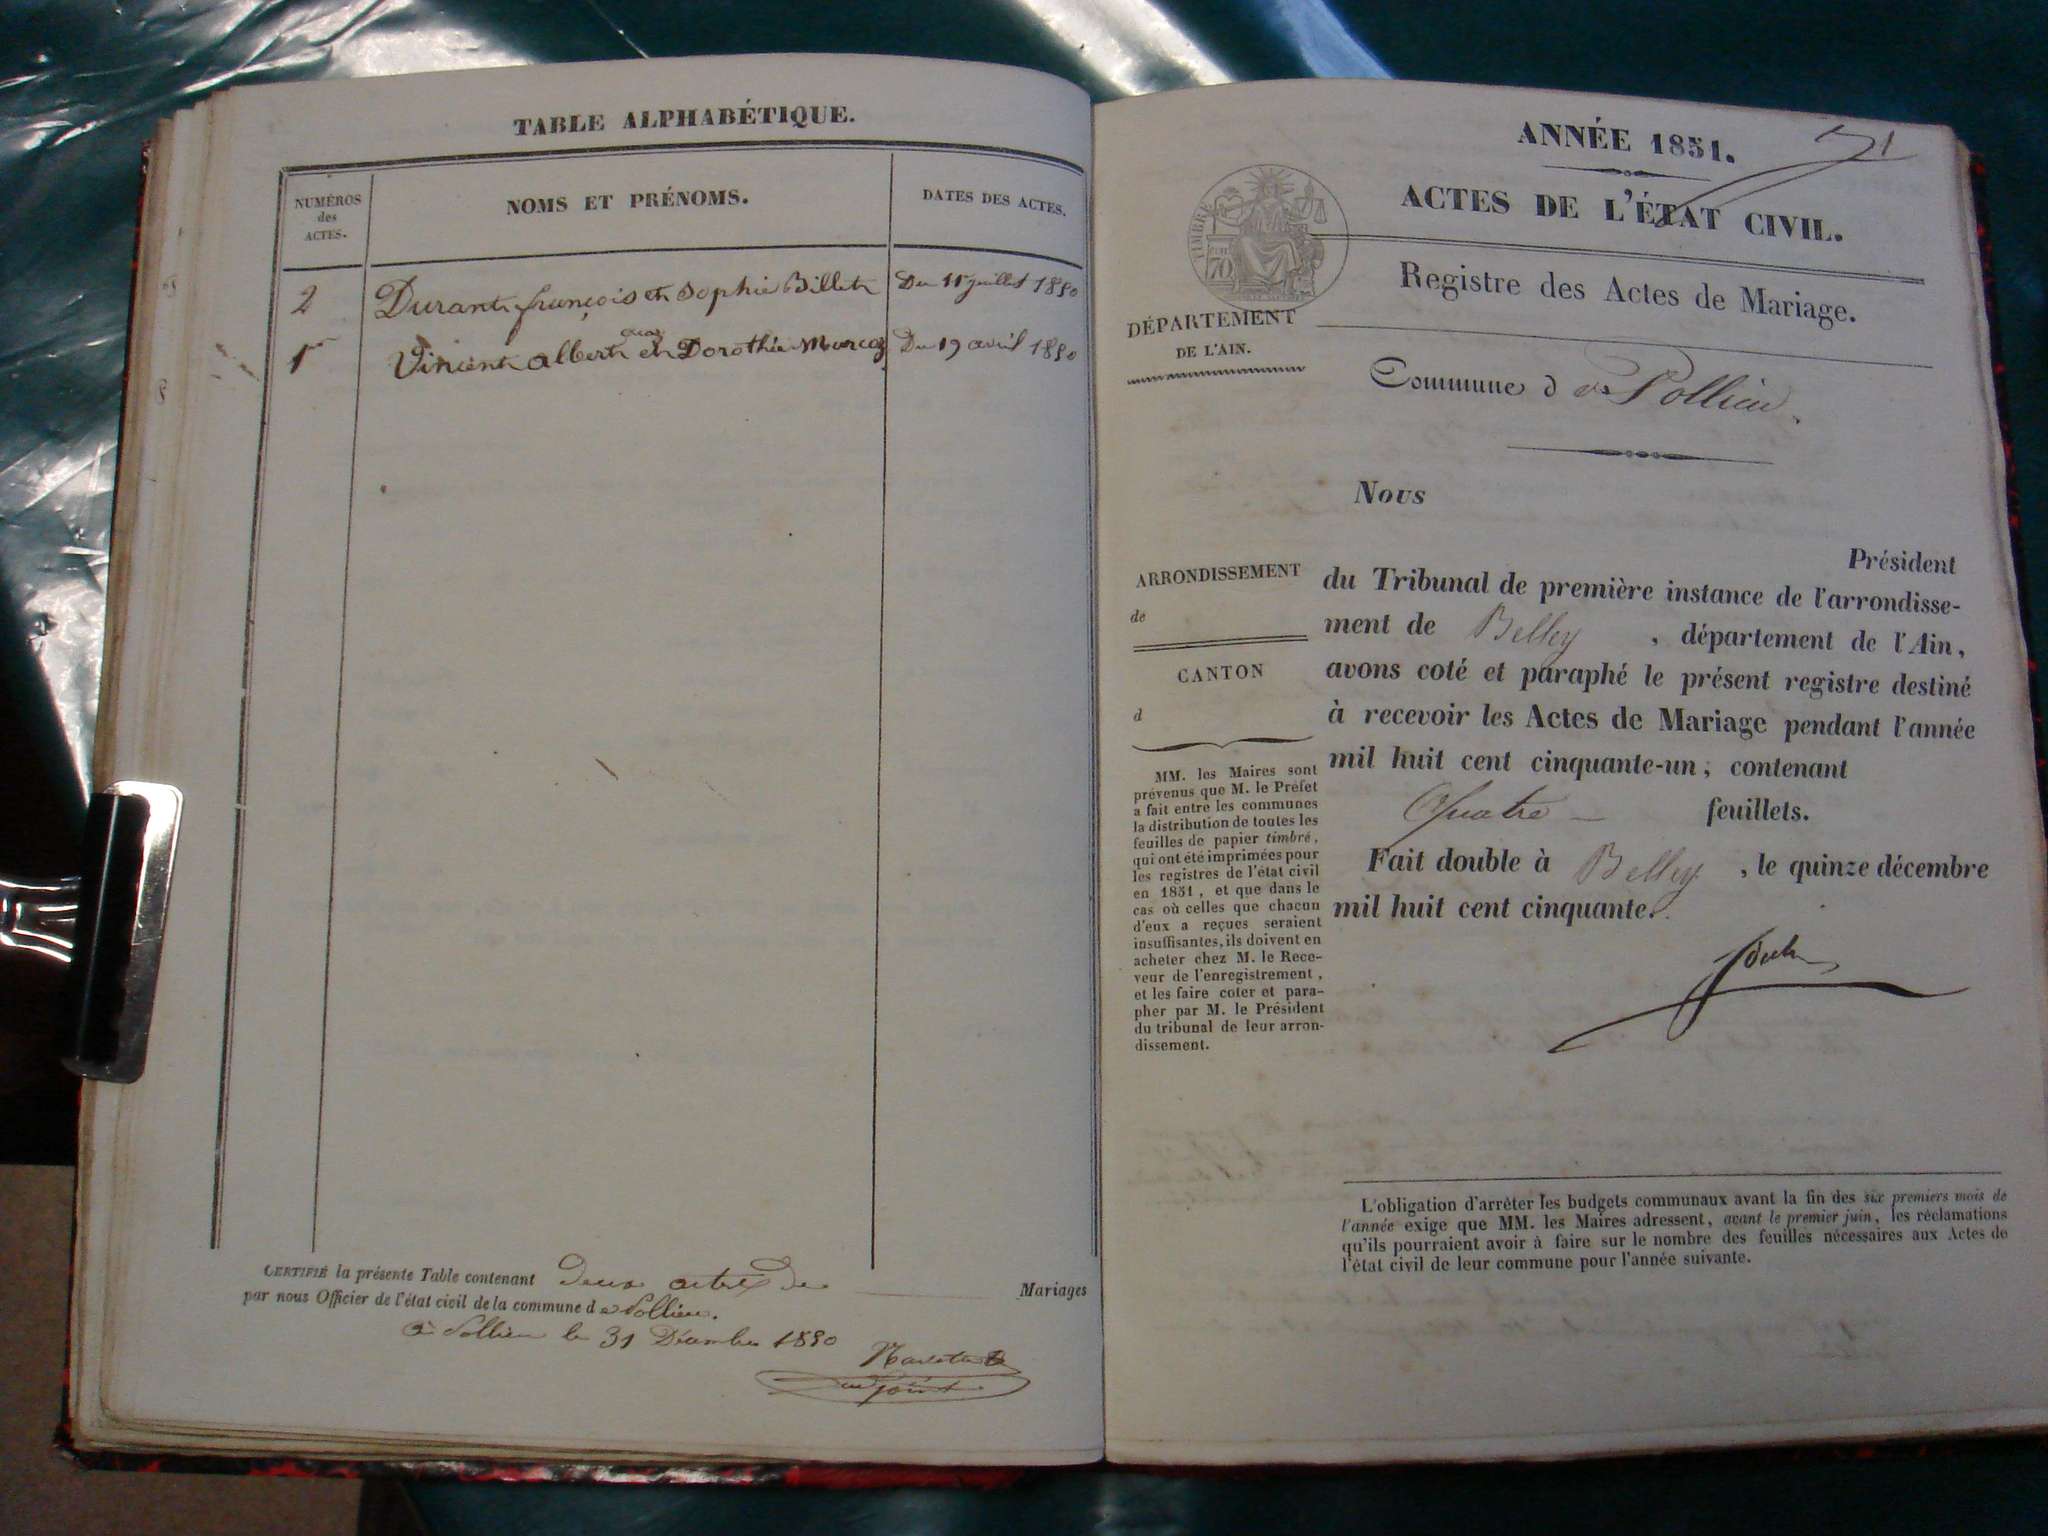 TABLE ALPHABÉTIQUE.
NUMÉROS
des
ACTES.
NOMS ET PRÉNOMS.
DATES DES ACTES.
2 Durant françois et Sophie Billet Du 15 juillet 1850
1er Vincent albert et Dorothée Marcoz Du 19 avril 1850
CERTIFIÉ la présente Table contenant deux actes de Mariages
par nous Officier de l'état civil de la commune de Pollieu.
à Pollieu le 31 Décembre 1850
adjoint
ANNÉE 1851.
1
ACTES DE L'ÉTAT CIVIL.
TIMBRE
70
Registre des Actes de Mariage.
DÉPARTEMENT
DE L'AIN.
Commune d e Pollieu.
Nous
Président
ARRONDISSEMENT
de
CANTON
d
du Tribunal de première instance de l'arrondisse-
ment de Belley, département de l'Ain,
avons coté et paraphé le présent registre destiné
à recevoir les Actes de Mariage pendant l'année
mil huit cent cinquante-un, contenant
Quatre feuillets.
Fait double à Belley, le quinze décembre
mil huit cent cinquante.
MM. les Maires sont
prévenus que M. le Préfet
a fait entre les communes
la distribution de toutes les
feuilles de papier timbré,
qui ont été imprimées pour
les registres de l'état civil
en 1851, et que dans le
cas où celles que chacun
d'eux a reçues seraient
insuffisantes, ils doivent en
acheter chez M. le Rece-
veur de l'enregistrement,
et les faire coter et para-
pher par M. le Président
du tribunal de leur arron-
dissement.
L'obligation d'arrêter les budgets communaux avant la fin des six premiers mois de
l'année exige que MM. les Maires adressent, avant le premier juin, les réclamations
qu'ils pourraient avoir à faire sur le nombre des feuilles nécessaires aux Actes de
l'état civil de leur commune pour l'année suivante.